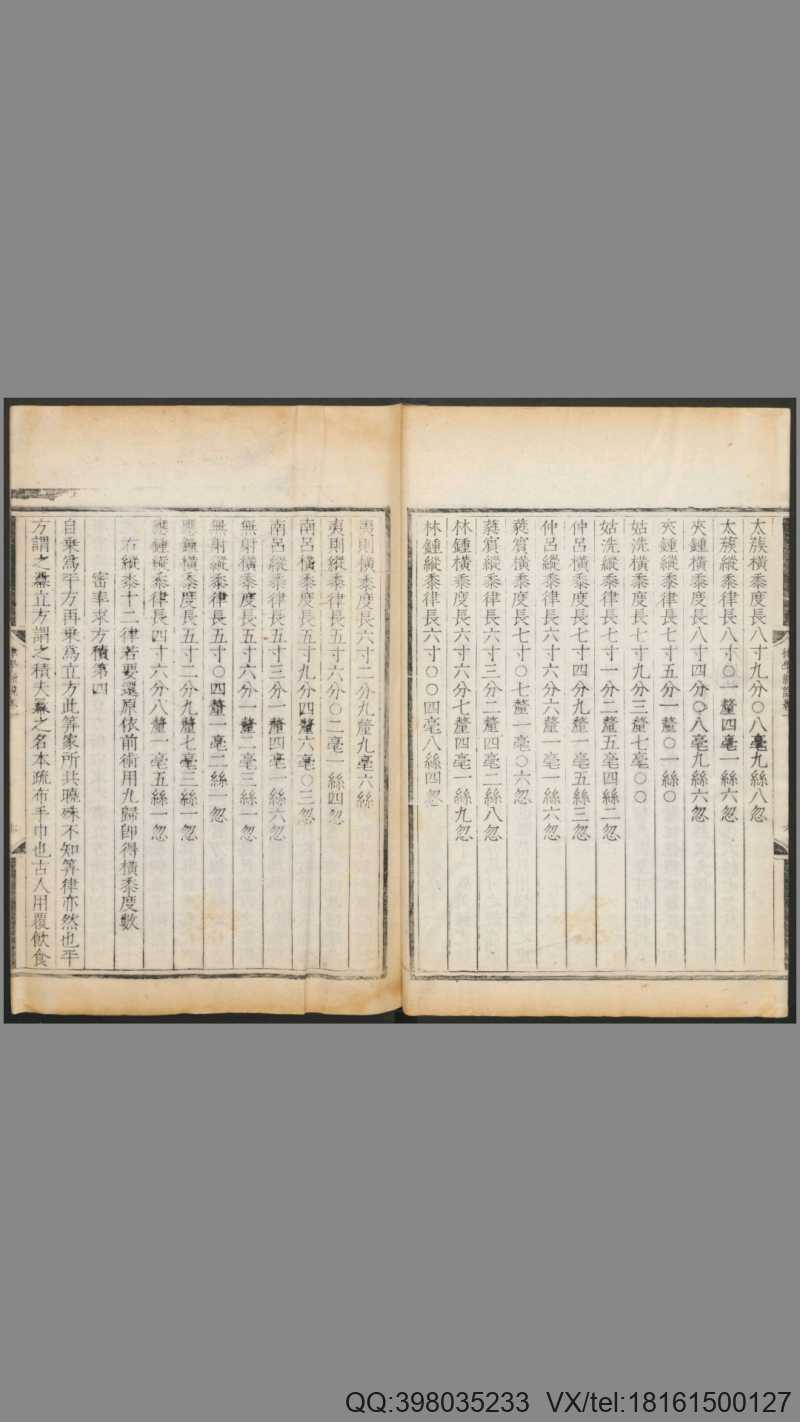 太蔟橫黍度長八寸九分〇八毫九絲八忽
太蔟縱黍律長八寸〇一釐四毫一絲六忽
夾鍾橫黍度長八寸四分〇八毫九絲六忽
夾鍾縱黍律長七寸五分一釐〇一絲〇
姑洗橫黍度長七寸九分三釐七毫〇〇
姑洗縱黍律長七寸一分二釐五毫四絲二忽
仲呂橫黍度長七寸四分九釐一毫五絲三忽
仲呂縱黍律長六寸六分六釐一毫一絲六忽
蕤賓橫黍度長七寸〇七釐一毫〇六忽
蕤賓縱黍律長六寸三分二釐四毫二絲八忽
林鍾橫黍度長六寸六分七釐四毫一絲九忽
林鍾縱黍律長六寸〇〇四毫八絲四忽
夷則橫黍度長六寸二分九釐九毫六絲
夷則縱黍律長五寸六分〇二毫一絲四忽
南呂橫黍度長五寸九分四釐六毫〇三忽
南呂縱黍律長五寸三分一釐四毫一絲六忽
無射橫黍度長五寸六分一釐二毫三絲一忽
無射縱黍律長五寸〇四釐一毫二絲一忽
應鍾橫黍度長五寸二分九釐七毫三絲一忽
應鍾縱黍律長四寸六分八釐一毫五絲一忽
右縱黍十二律若要還原依前術用九歸卽得橫黍度數
密率求方積第四
自乘爲平方再乘爲立方此筭家所共曉殊不知筭律亦然也平
方謂之冪立方謂之積夫冪之名本疏布手巾也古人用覆飲食
QQ:398035233 VX/tel:18161500127